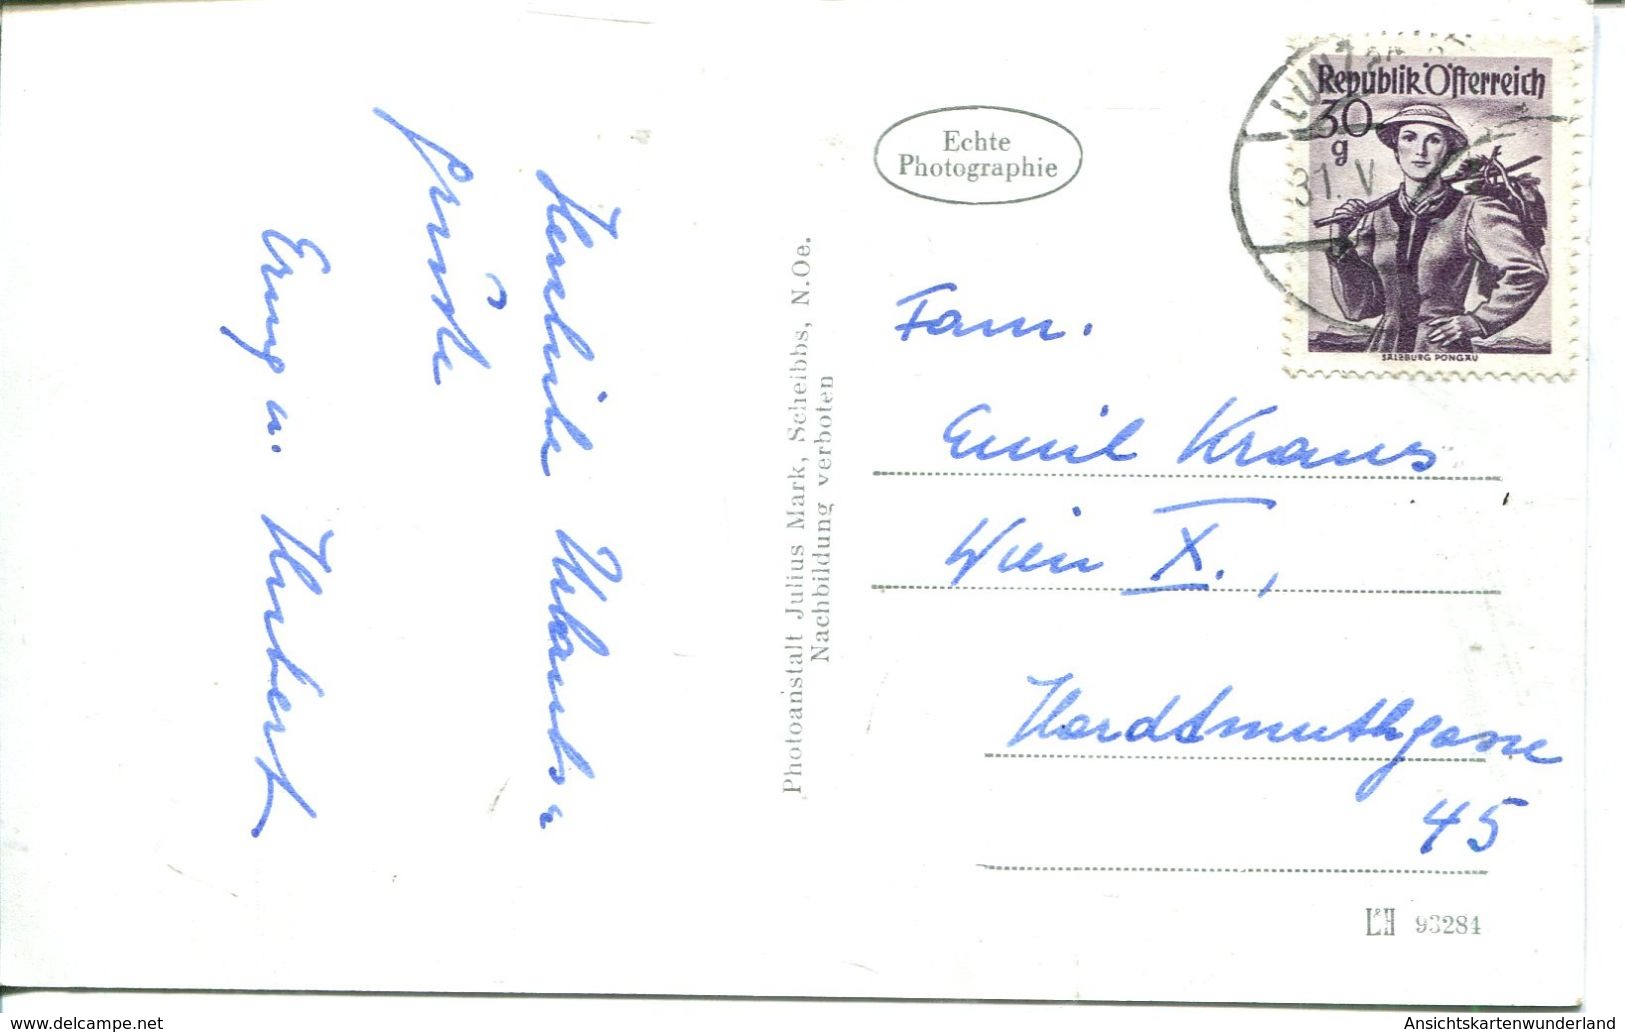 Herzliche Urlaubs-
grüße
Erny u. Herbert
Echte
Photographie
Photoanstalt Julius Mark, Scheibbs, N.Oe.
Nachbildung verboten
LUNZ
31. V
Republik Österreich
30
g
SALZBURG PONGAU
Fam.
Emil Kraus
Wien X.,
Hardtmuthgasse
45
L&H 93284
www.delcampe.net
Ansichtskartenwunderland